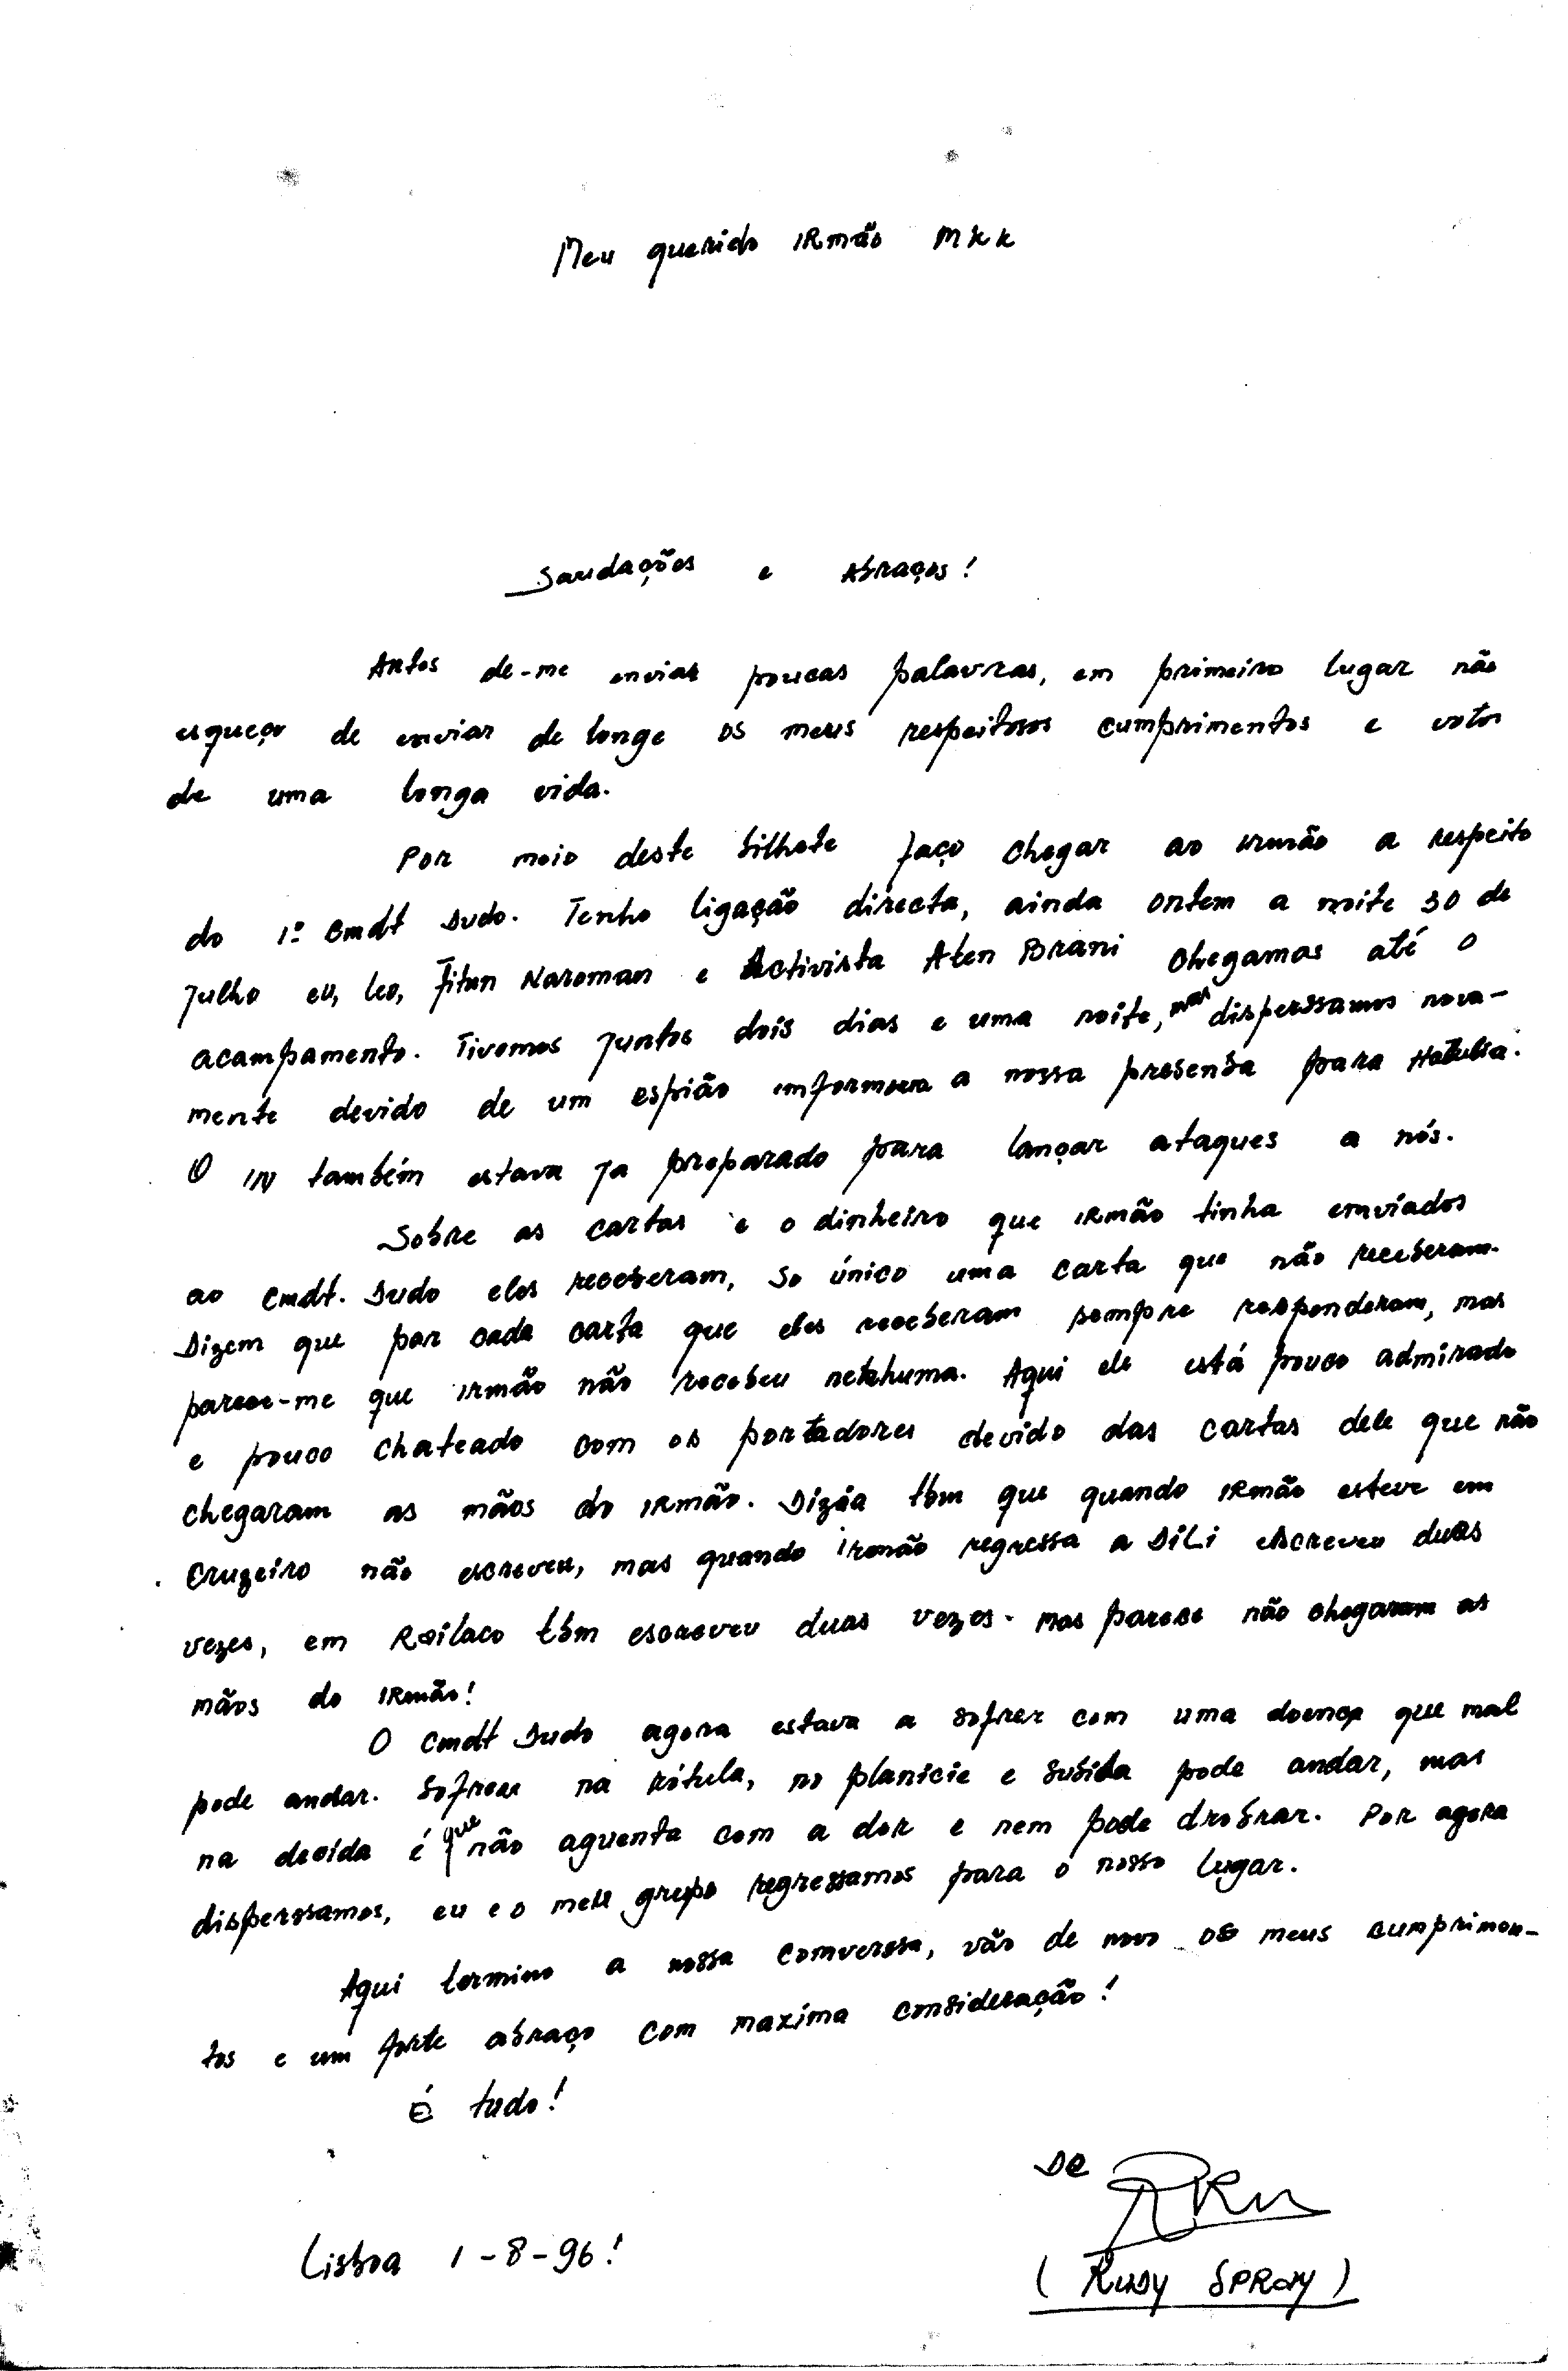 Meu querido IRmão MKK
Saudações e Abraços!
Antes de-me enviar poucas palavras, em primeiro lugar não
esqueço de enviar de longe os meus respeitosos cumprimentos e votos
de uma longa vida.
Por meio deste bilhete faço chegar ao irmão a respeito
do 1º Cmdt Dudo. Tenho ligação directa, ainda ontem a noite 30 de
Julho eu, Leo, Fitun Naroman e Activista Aten Brani chegamos até o
acampamento. Tivemos juntos dois dias e uma noite, mas disperssamos nova-
mente devido de um espião informava a nossa presensa para Hatulia.
O IN também estava ja preparado para lançar ataques a nós.
Sobre as cartas e o dinheiro que IRmão tinha enviados
ao Cmdt. Dudo eles receberam, so único uma carta que não receberam.
Dizem que por cada carta que eles receberam sempre responderam, mas
parece-me que irmão não recebeu nenhuma. Aqui ele está pouco admirado
e pouco chateado com os portadores devido das cartas dele que não
chegaram as mãos do IRmão. Dizia tbm que quando IRmão esteve em
Cruzeiro não escreveu, mas quando irmão regressa a Dili escreveu duas
vezes, em Railaco tbm escreveu duas vezes. Mas parece não chegaram as
mãos do IRmão!
O Cmdt Dudo agora estava a sofrer com uma doença que mal
pode andar. Sofreu na rótula, no planicie e subida pode andar, mas
na decida é que não aguenta com a dor e nem pode drobrar. Por agora
disperssamos, eu e o meu grupo regressamos para o nosso lugar.
Aqui termino a nossa comverssa, vão de novo os meus cumprimen-
tos e um forte abraço com maxima consideração!
É tudo!
De
Lisboa 1-8-96!
(Rudy SPRay)